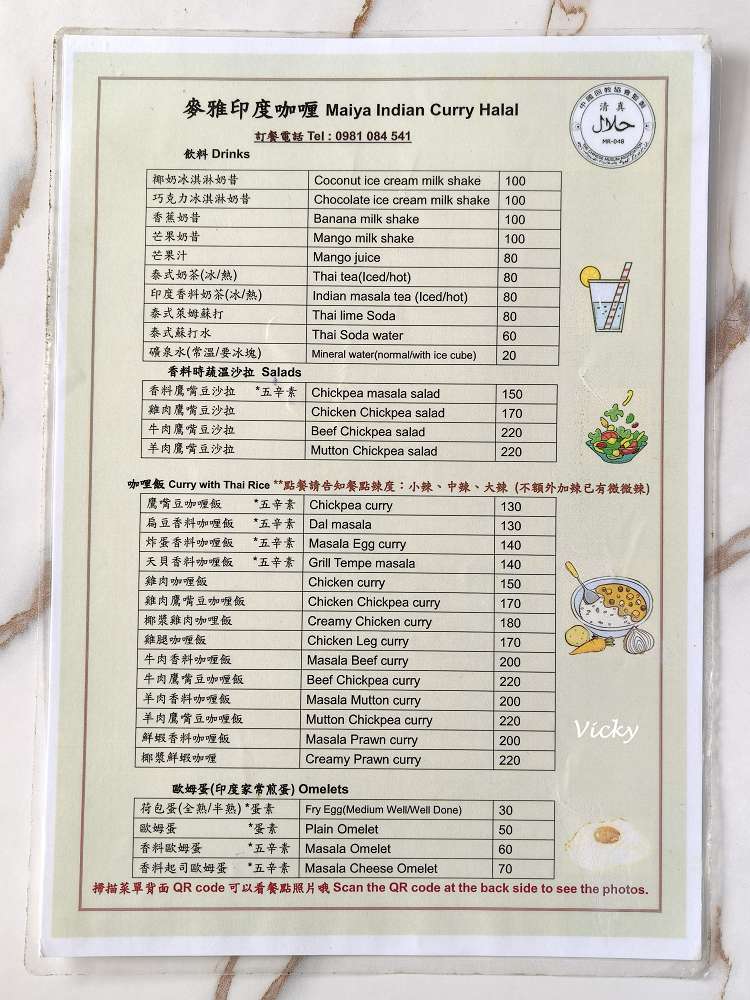 麥雅印度咖喱 Maiya Indian Curry Halal
訂餐電話 Tel : 0981 084 541
中國回教協會監製
清真
حلال
MR-048
飲料 Drinks
椰奶冰淇淋奶昔 Coconut ice cream milk shake 100
巧克力冰淇淋奶昔 Chocolate ice cream milk shake 100
香蕉奶昔 Banana milk shake 100
芒果奶昔 Mango milk shake 100
芒果汁 Mango juice 80
泰式奶茶(冰/熱) Thai tea(Iced/hot) 80
印度香料奶茶(冰/熱) Indian masala tea (Iced/hot) 80
泰式萊姆蘇打 Thai lime Soda 80
泰式蘇打水 Thai Soda water 60
礦泉水(常溫/要冰塊) Mineral water(normal/with ice cube) 20
香料時蔬溫沙拉 Salads
香料鷹嘴豆沙拉 *五辛素 Chickpea masala salad 150
雞肉鷹嘴豆沙拉 Chicken Chickpea salad 170
牛肉鷹嘴豆沙拉 Beef Chickpea salad 220
羊肉鷹嘴豆沙拉 Mutton Chickpea salad 220
咖哩飯 Curry with Thai Rice **點餐請告知餐點辣度：小辣、中辣、大辣 (不額外加辣已有微微辣)
鷹嘴豆咖喱飯 *五辛素 Chickpea curry 130
扁豆香料咖喱飯 *五辛素 Dal masala 130
炸蛋香料咖喱飯 *五辛素 Masala Egg curry 140
天貝香料咖喱飯 *五辛素 Grill Tempe masala 140
雞肉咖喱飯 Chicken curry 150
雞肉鷹嘴豆咖喱飯 Chicken Chickpea curry 170
椰漿雞肉咖哩飯 Creamy Chicken curry 180
雞腿咖喱飯 Chicken Leg curry 170
牛肉香料咖喱飯 Masala Beef curry 200
牛肉鷹嘴豆咖喱飯 Beef Chickpea curry 220
羊肉香料咖喱飯 Masala Mutton curry 200
羊肉鷹嘴豆咖喱飯 Mutton Chickpea curry 220
鮮蝦香料咖喱飯 Masala Prawn curry 200
椰漿鮮蝦咖喱 Creamy Prawn curry 220
Vicky
歐姆蛋(印度家常煎蛋) Omelets
荷包蛋(全熟/半熟) *蛋素 Fry Egg(Medium Well/Well Done) 30
歐姆蛋 *蛋素 Plain Omelet 50
香料歐姆蛋 *五辛素 Masala Omelet 60
香料起司歐姆蛋 *五辛素 Masala Cheese Omelet 70
掃描菜單背面 QR code 可以看餐點照片哦 Scan the QR code at the back side to see the photos.